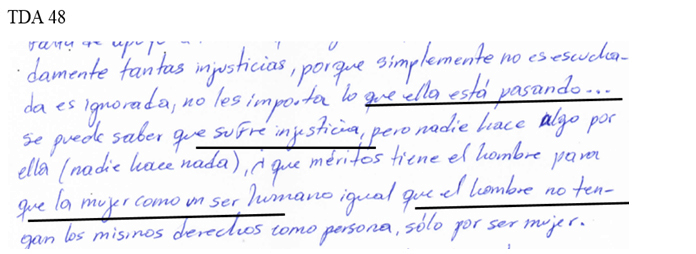 TDA 48
falta de apoyo
damente tantas injusticias, porque simplemente no es escucha-
da es ignorada, no les importa lo que ella está pasando...
se puede saber que sufre injusticia, pero nadie hace algo por
ella (nadie hace nada), ¿ que méritos tiene el hombre para
que la mujer como un ser humano igual que el hombre no ten-
gan los mismos derechos como persona, sólo por ser mujer.